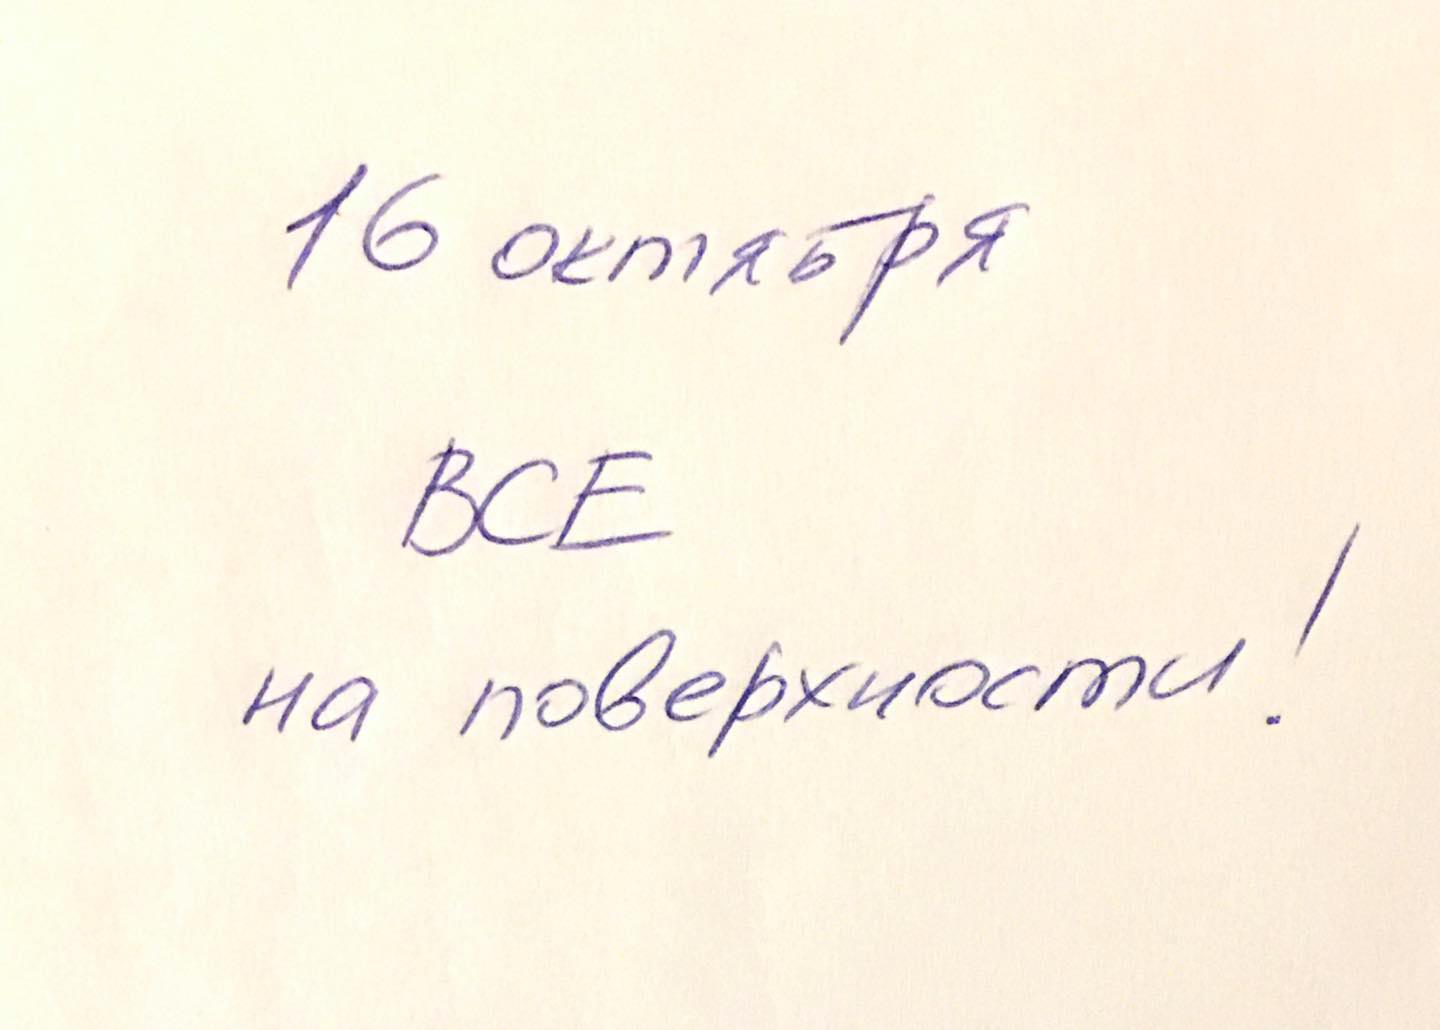 16 октября
ВСЕ
на поверхности!